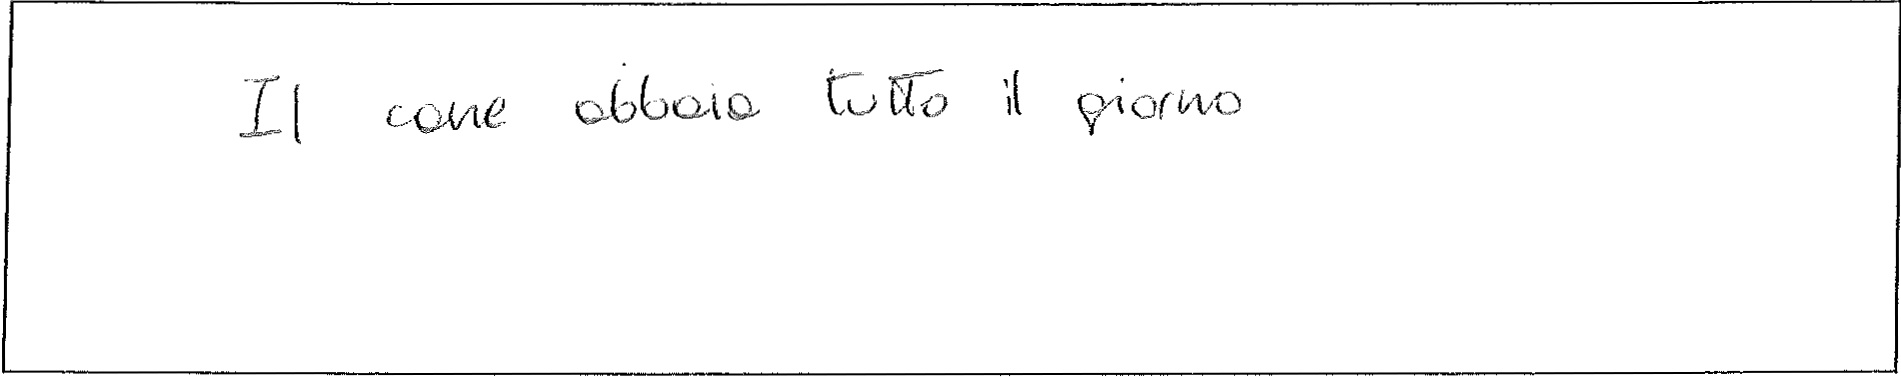 Il cane abbaia tutto il giorno